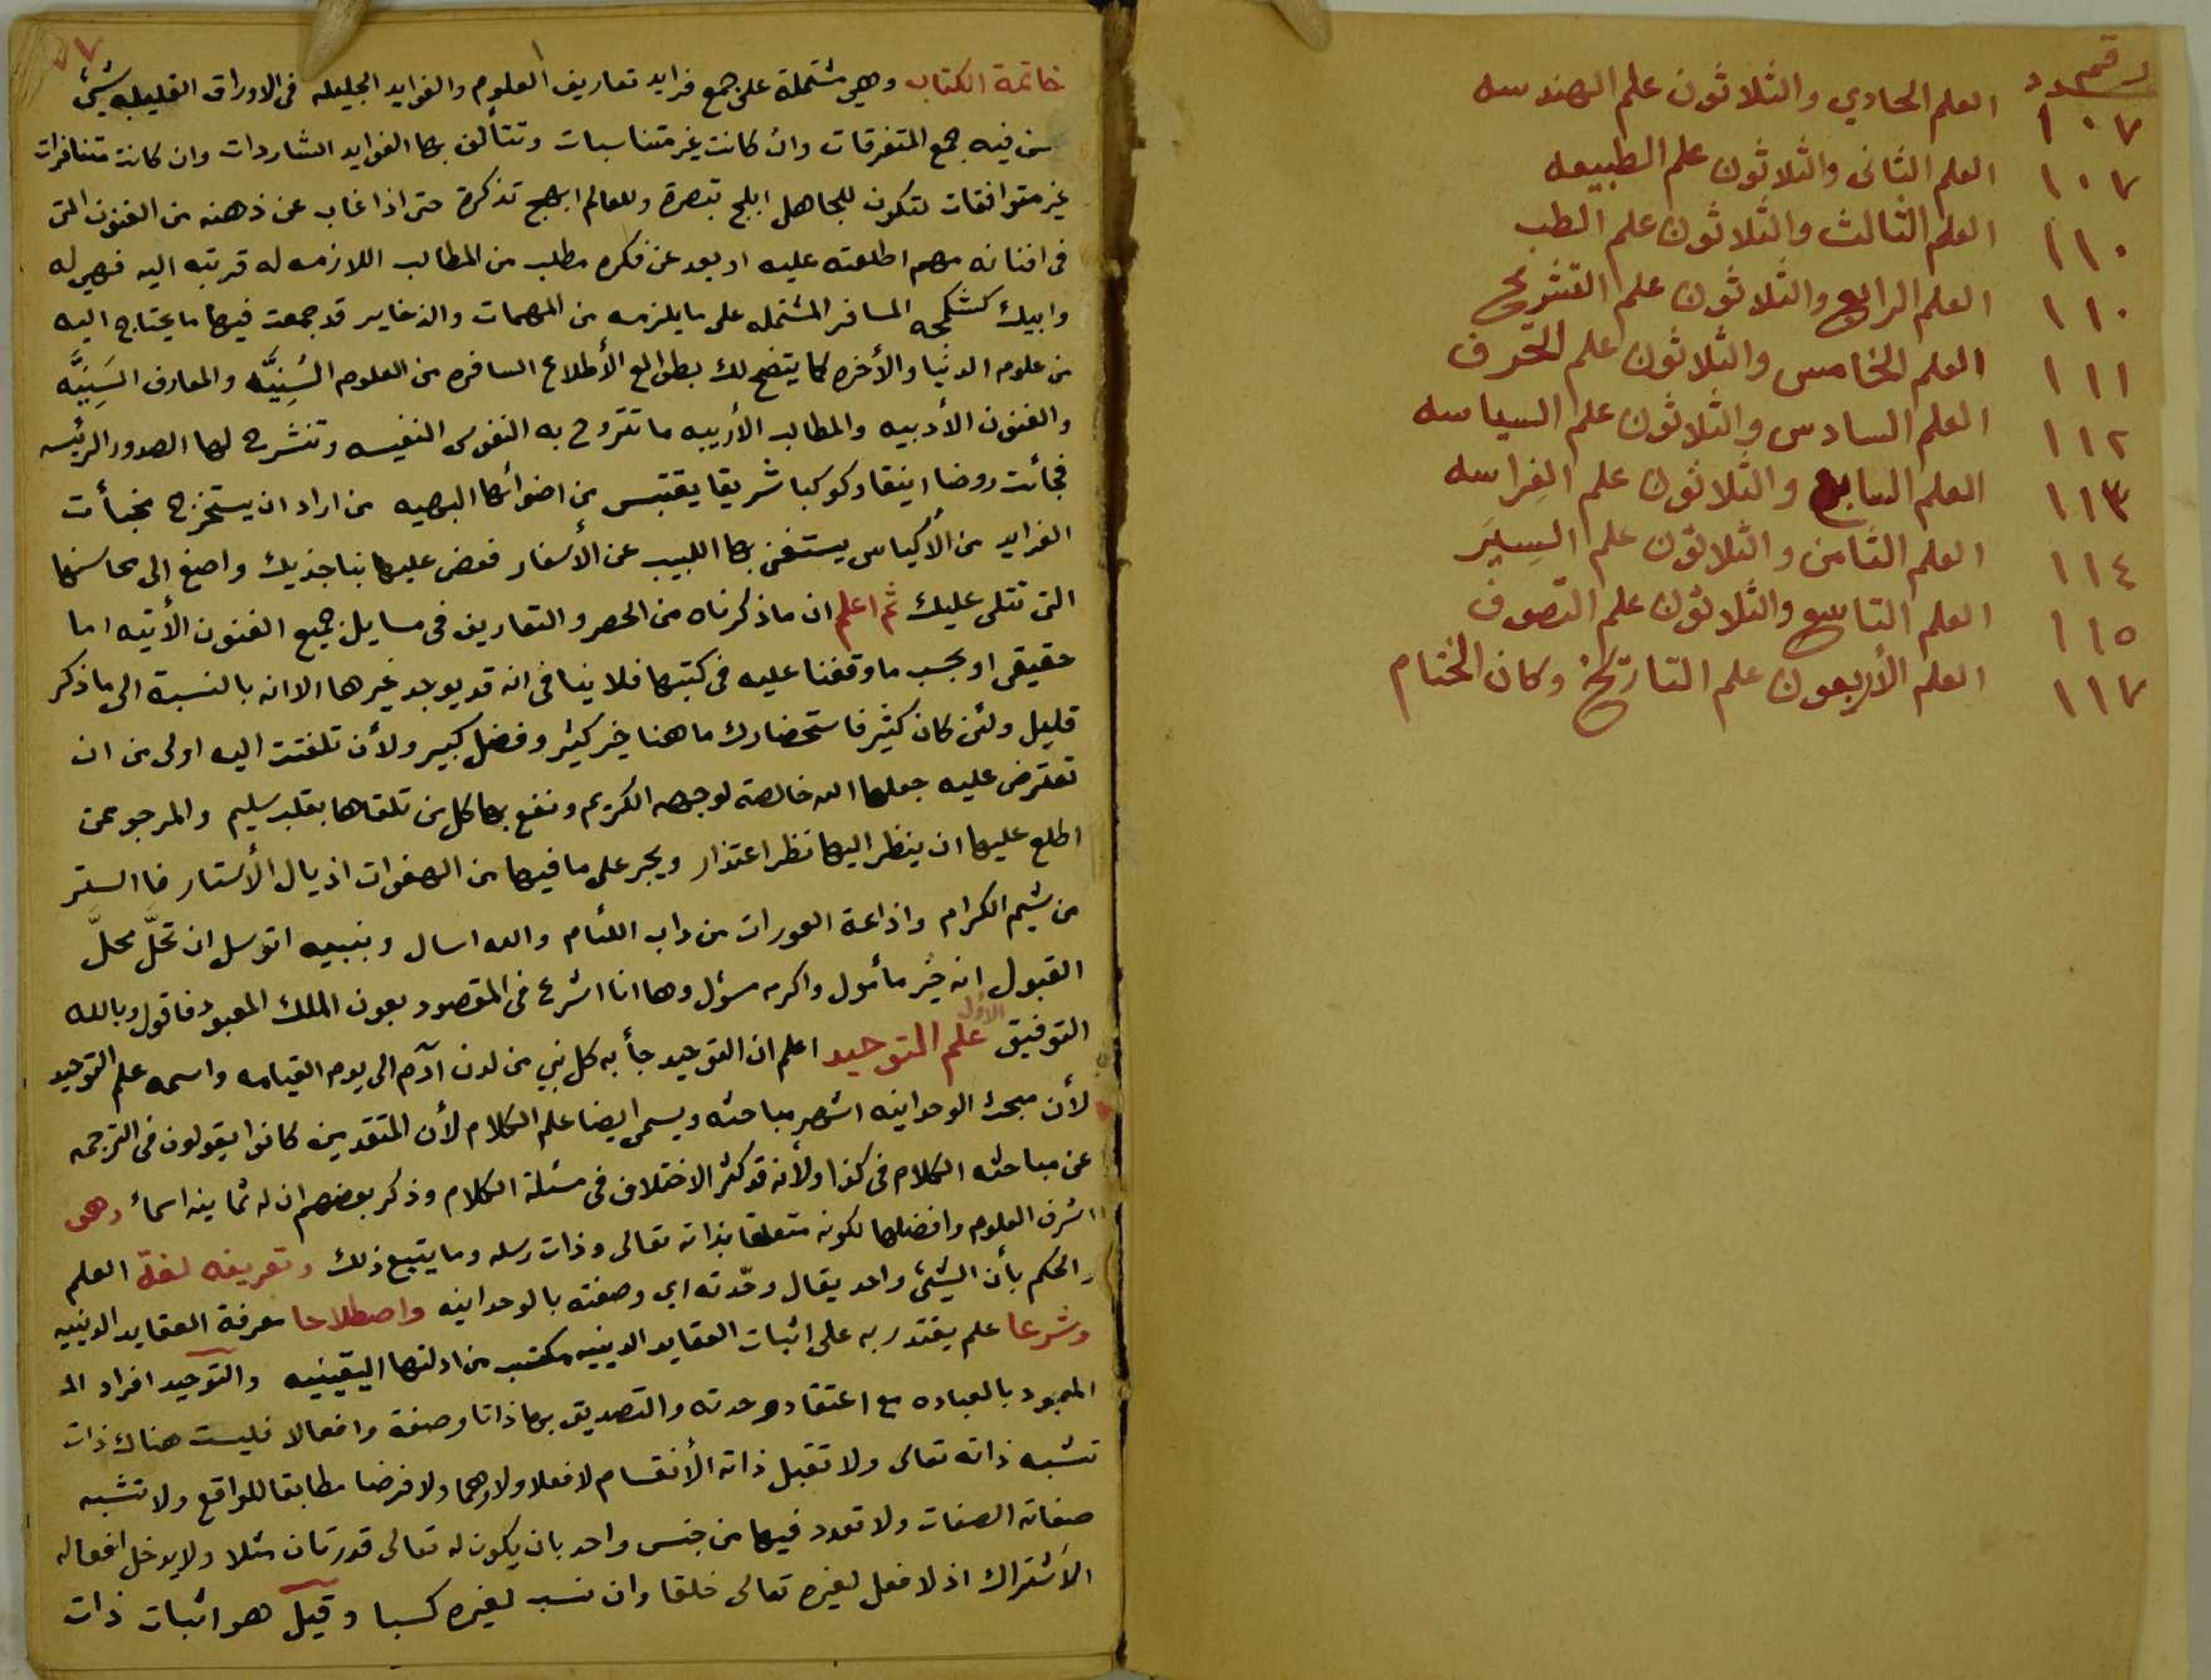 رقم عدد
١٠٧ العلم الحادي والثلاثون علم الهندسه
١٠٧ العلم الثاني والثلاثون علم الطبيعه
١١٠ العلم الثالث والثلاثون علم الطب
١١٠ العلم الرابع والثلاثون علم التشريح
١١١ العلم الخامس والثلاثون علم الحرف
١١٢ العلم السادس والثلاثون علم السياسه
١١٣ العلم السابع والثلاثون علم الفراسه
١١٤ العلم الثامن والثلاثون علم السِيَر
١١٥ العلم التاسع والثلاثون علم التصوف
١١٧ العلم الأربعون علم التاريخ وكان الختام
خاتمة الكتاب وهي مشتملة على جمع فرايد تعاريف العلوم والفوايد الجليله في الاوراق القليله شيئ
من فيه جمع المتفرقات وان كانت غير متناسبات وتتألف بها الفوايد الشاردات وان كانت متنافرات
غير متوافقات لتكون للجاهل ابلج تبصرة وللعالم ابهج تذكرة حتى اذا غاب عن ذهنه من الفنون التى
فى افنانه مهم اطلعته عليه او بعد عن فكره مطلب من المطالب اللازمه له قربته اليه فهي له
وابيك كشكجه المسافر المشتمله على ما يلزمه من المهمات والذخاير قد جمعت فيها ما يحتاج اليه
من علوم الدنيا والأخره كما يتضح لك بطوالع الأطلاع السافره من العلوم السَنِيَّه والمعارف السَنِيَّه
والفنون الأدبيه والمطالب الأربيه ما تتروح به النفوس النفيسه وتنشرح لها الصدور الرئيسه
فجائت روضا اينقا وكوكبا شريقا يقتبس من اضوائها البهيه من اراد ان يستخرج مخبأت
الفرايد من الأكياس يستغنى بها اللبيب عن الأسفار فعض عليها بناجذيك واصغ الى محاسنها
التى تتلى عليك ثم اعلم ان ما ذكرناه من الحصر والتعاريف فى مسايل جميع الفنون الأتيه اما
حقيقى او بحسب ما وقفنا عليه فى كتبها فلا ينافى انه قد يوجد غيرها الا انه بالنسبة الى ما ذكر
قليل ولئن كان كثير فاستحضارك ما هنا خير كثير وفضل كبير ولأن تلفتت اليه اولى من ان
تعترض عليه جعلها الله خالصة لوجهه الكريم ونفع بها كل من تلقاها بقلب سليم والمرجو ممن
اطلع عليها ان ينظر اليها نظر اعتذار ويجر على ما فيها من الهفوات اذيال الأستار فا الستر
من شيم الكرام واذاعة العورات من داب اللئام والله اسال وبنبيه اتوسل ان تحلّ محلّ
القبول انه خير مأمول واكرم مسؤل وها انا اشرع فى المقصود بعون الملك المعبود فاقول وبالله
التوفيق الأول علم التوحيد اعلم ان التوحيد جأ به كل نبي من لدن آدم الى يوم القيامه واسمه علم التوحيد
لأن مبحث الوحدانيه اشهر مباحثه ويسمى ايضا علم الكلام لأن المتقدمين كانوا يقولون فى الترجمه
عن مباحثه الكلام فى كذا ولأنه قد كثر الاختلاف فى مسئلة الكلام وذكر بعضهم ان له ثمانيه اسمأ وهو
اشرف العلوم وافضلها لكونه متعلقا بذاته تعالى وذات رسله وما يتبع ذلك وتعريفه لغة العلم
والحكم بأن الشيئ واحد يقال وحّدته اي وصفته بالوحدانيه واصطلاحا معرفة العقايد الدينيه
وشرعا علم يقتدر به على اثبات العقايد الدينيه مكتسب من ادلتها اليقينيه والتوحيد افراد
المعبود بالعباده مع اعتقاد وحدته والتصديق بها ذاتا وصفة وافعالا فليست هناك ذات
تشبه ذاته تعالى ولا تقبل ذاته الأنقسام لا فعلا ولا وهما ولا فرضا مطابقا للواقع ولا تشبه
صفاته الصفات ولا تعدد فيها من جنس واحد بان يكون له تعالى قدرتان مثلا ولا يدخل افعاله
الأشتراك اذ لا فعل لغيره تعالى خلقا وان نسب لغيره كسبا وقيل هو اثبات ذات